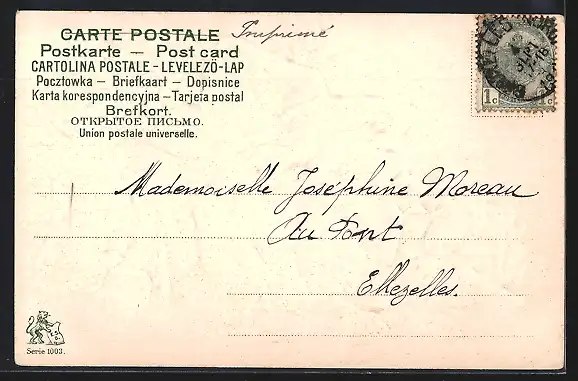 CARTE POSTALE
Imprimé
Postkarte — Post card
CARTOLINA POSTALE - LEVELEZÖ-LAP
Pocztowka — Briefkaart — Dopisnice
Karta korespondencyjna — Tarjeta postal
Brefkort.
ОТКРЫТОЕ ПИСЬМО.
Union postale universelle.
1c 1c
Mademoiselle Joséphine Moreau
Au Pont
Ellezelles.
Serie 1003.